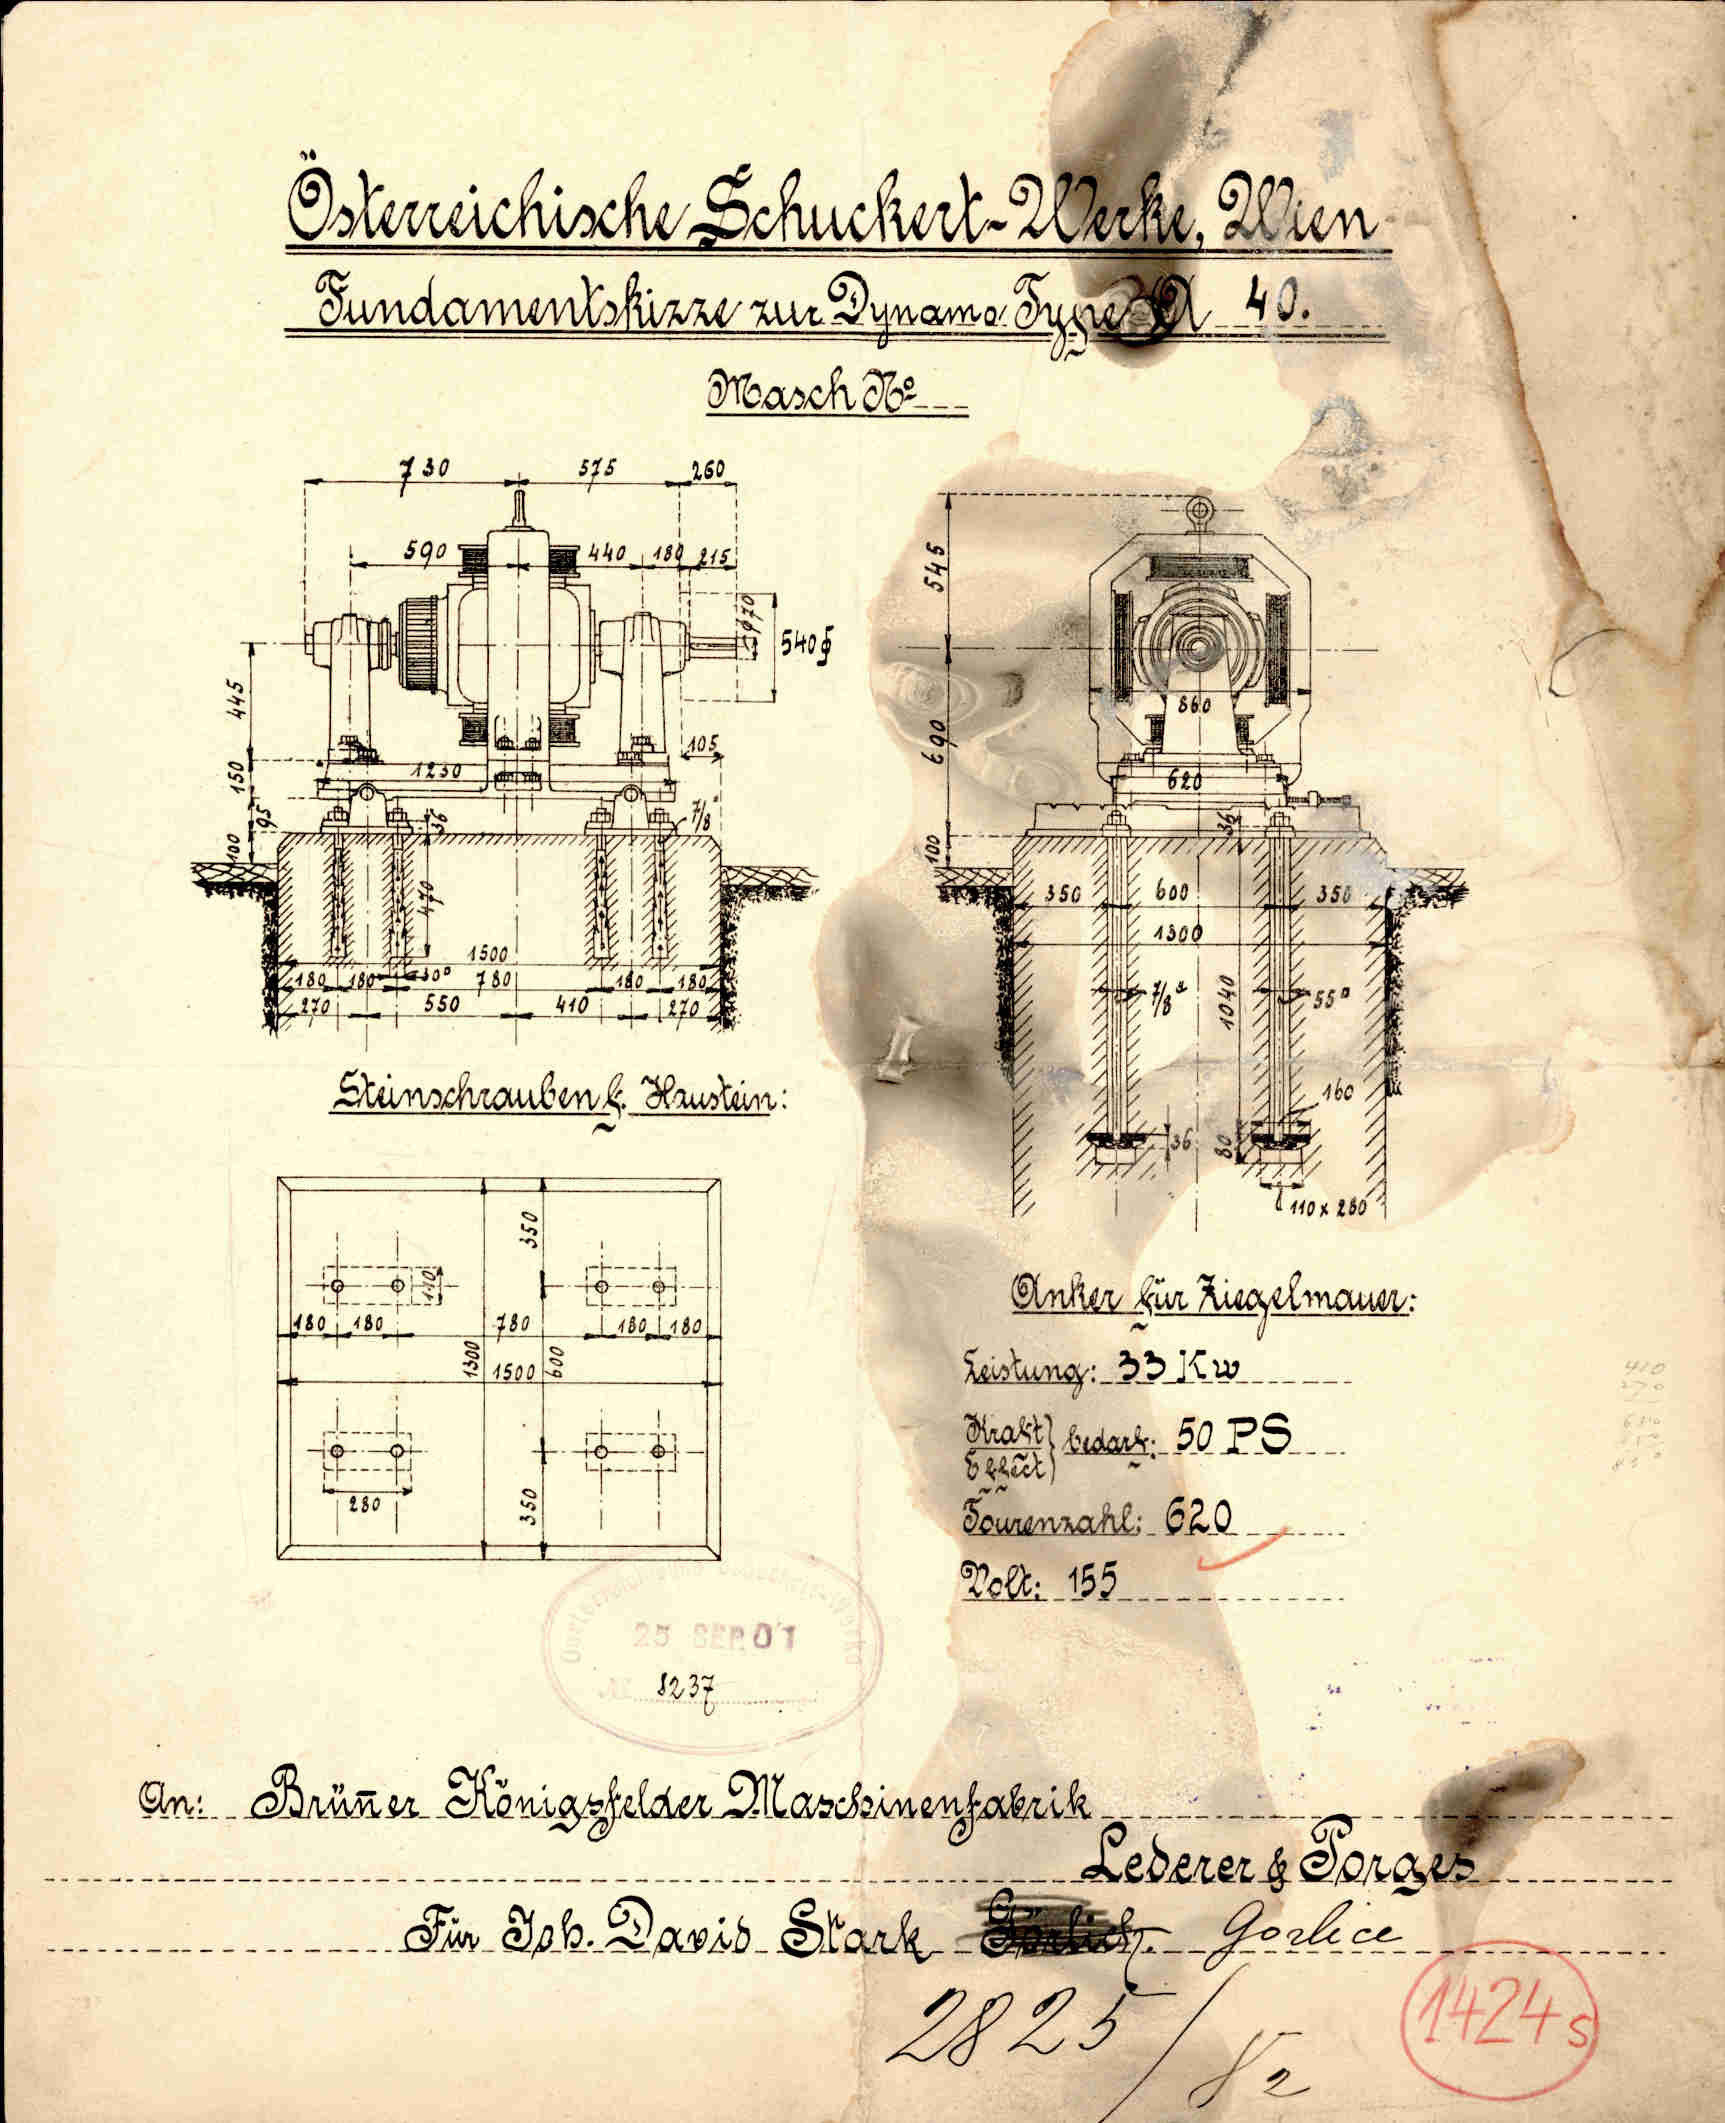 Österreichische Schuckert-Werke, Wien
Fundamentskizze zur Dynamo Type A 40.
Masch No
730 575 260
590 440 180 215
φ70
540
445
150
95
100
1250
105
7/8"
36
470
1500
180 180 30□ 780 180 180
270 550 410 270
Steinschrauben f. Haustein:
545
690
100
860
620
36
350 600 350
1300
7/8"
1040
55□
160
36
80
110 x 280
Anker für Ziegelmauer:
350
110
180 180 780 180 180
1300
1500
600
280
350
Leistung: 33 Kw
Kraft
Effect
bedarf: 50 PS
Tourenzahl: 620
Volt: 155
Oesterreichische Schuckert-Werke
25 SEP. 01
№ 8237
An: Brün̄er Königsfelder Maschinenfabrik
Lederer & Porges
Für Joh. David Stark Görlich. Gorlice
2825/
1424 s